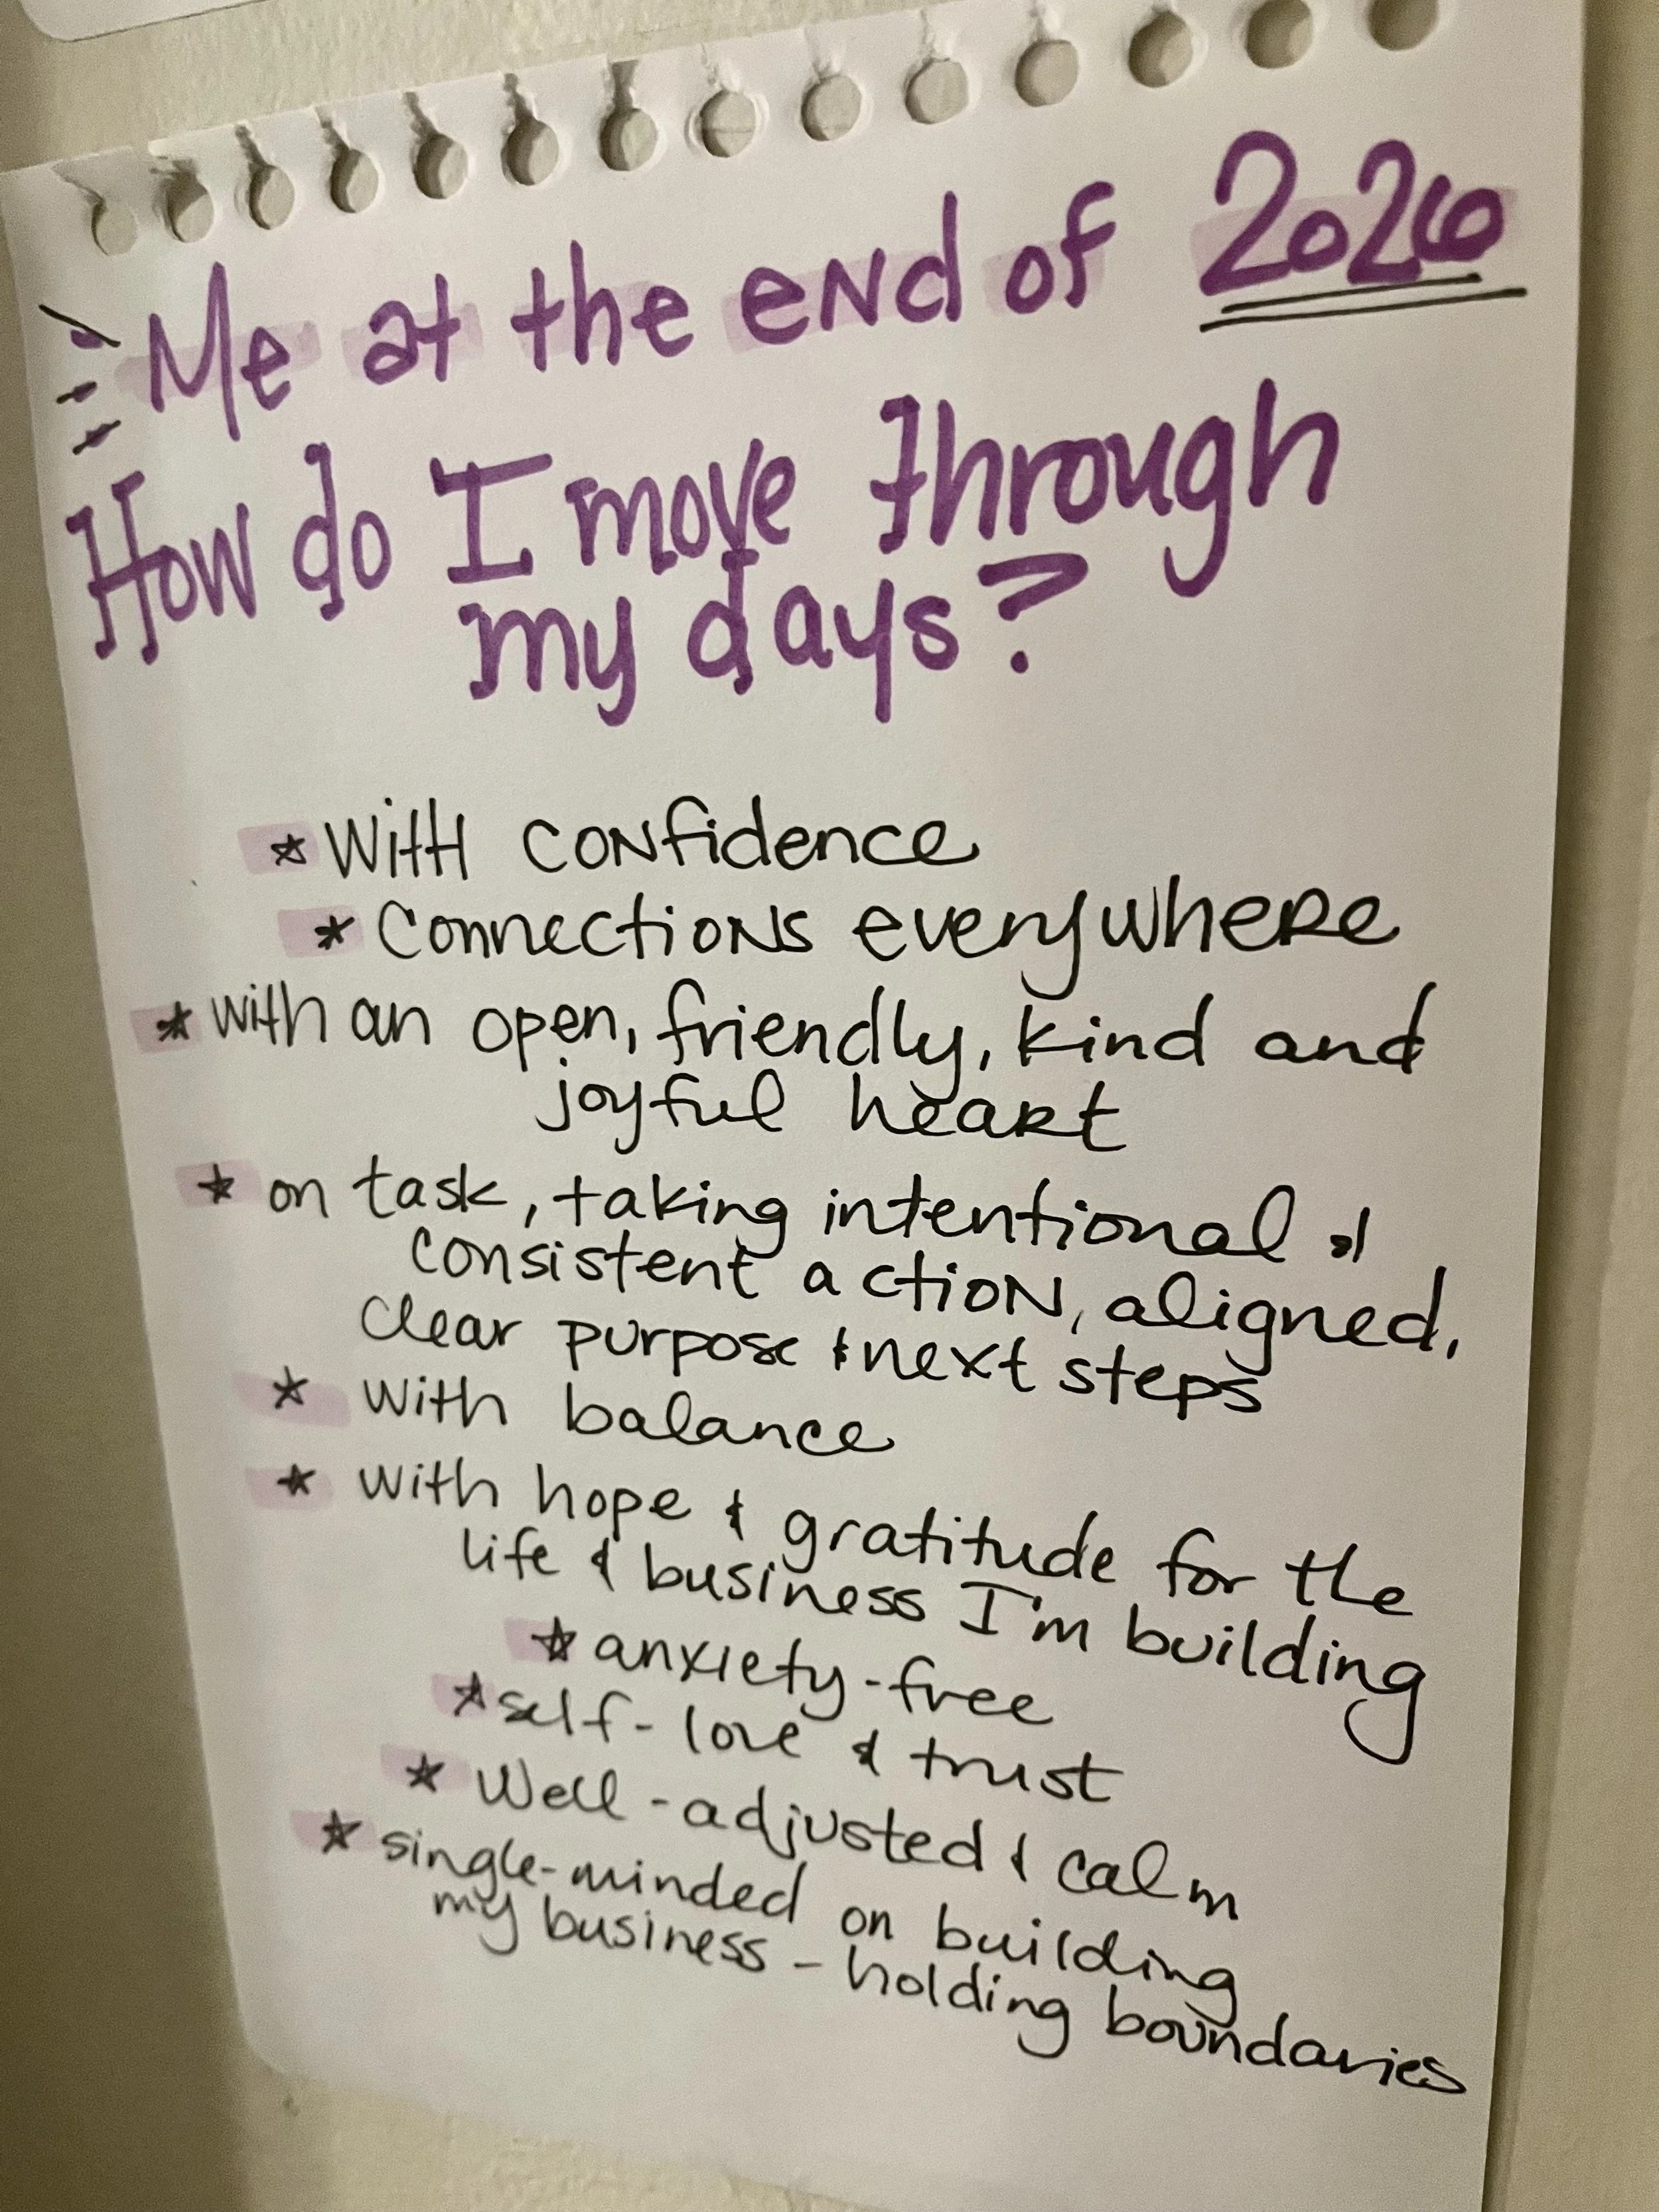 Me at the end of 2026
How do I move through
my days?
☆ With confidence
* Connections everywhere
* with an open, friendly, kind and
joyful heart
* on task, taking intentional &
consistent action, aligned,
clear purpose & next steps
* with balance
* with hope & gratitude for the
life & business I'm building
☆ anxiety-free
* self-love & trust
* Well-adjusted & calm
* single-minded on building
my business - holding boundaries